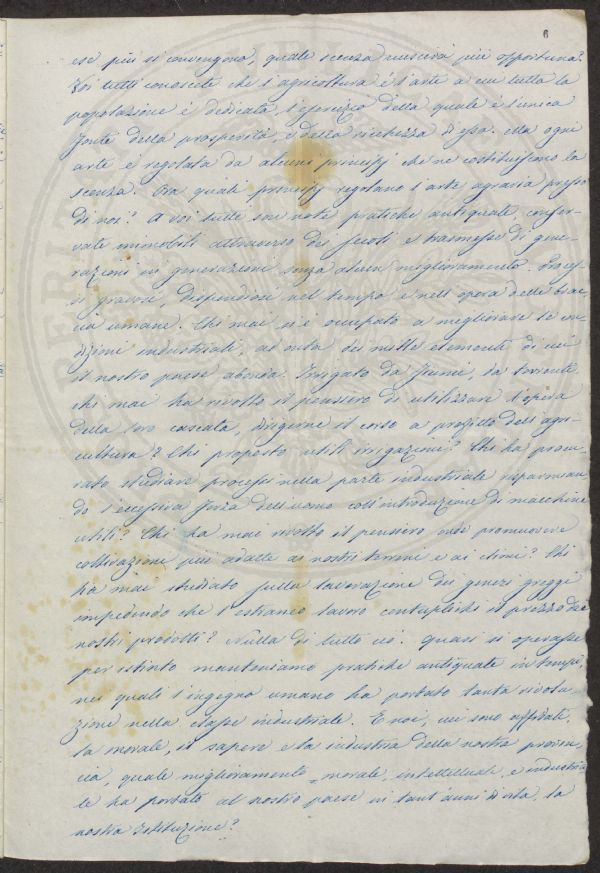 6
esè più si convengono, quale scenza riuscirà più opportuna?
Voi tutti conoscete che l'agricoltura è l'arte a cui tutta la
popolazione è dedicata, l'esercizio della quale è l'unica
fonte della prosperità, e della richezza di essa. Ma ogni
arte è regolata da alcuni principj che ne costituiscono la
scenza. Ora quali principj regolano l'arte agraria presso
di noi? A voi tutte son note pratiche antiquate, conser-
vate immobili attraverso dei secoli e trasmesse di gene-
razioni in generazioni senza alcun miglioramento. Proces-
si gravosi, dispendiosi nel tempo e nell'opera delle brac-
cia umane. Chi mai si è occupato a migliorare le con-
dizioni industriale, ad onta dei mille elementi di cui
il nostro paese abonda. Irrigato da fiumi, da torrenti
chi mai ha rivolto il pensiero di utilizzare l'opera
della loro cascata, dirigerne il corso a profitto dell'agri-
cultura? Chi proposto utili irrigazioni? Chi ha procu-
rato studiare processi nella parte industriale risparmian-
do l'eccessiva forza dell'uomo coll'introduzione di macchine
utili? Chi ha mai rivolto il pensiero onde promuovere
coltivazione più adatte ai nostri terreni e ai climi? Chi
ha mai studiato sulla lavorazione dei generi greggi
impedendo che l'estraneo lavoro centuplichi il prezzo dei
nostri prodotti? Nulla di tutto ciò. Quasi si operasse
per istinto manteniamo pratiche antiquate in tempi,
nei quali l'ingegno umano ha portato tanta rivolu-
zione nella classe industriale. E noi, cui sono affidate
la morale, il sapere e la industria della nostra provin-
cia, quale miglioramento morale, intellettuale, e industria
le ha portato al nostro paese in tant'anni di vita, la
nostra Istituzione?